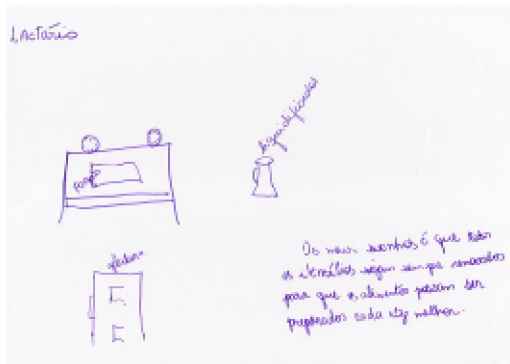 Lactário
liquidificador
fogão
geladeira
Os meus sonhos é que todos
os utensílios sejam sempre renovados
para que os alimentos possam ser
preparados cada vez melhor.